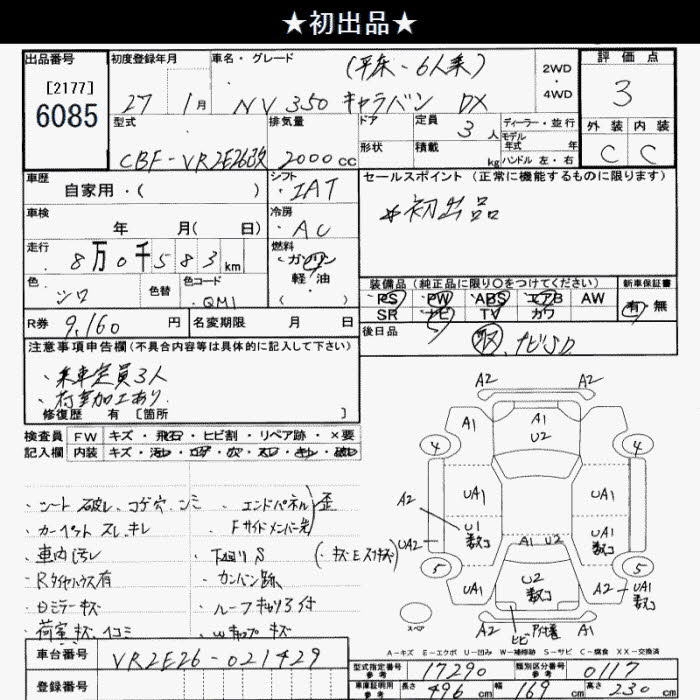 ★初出品★
出品番号 初度登録年月 車名・グレード (平床-6人乗) 2WD・4WD 評価点
[2177]
6085
27 1月 NV350 キャラバン DX 3
型式 排気量 ドア 定員 3人 ディーラー・並行 外装 内装
モデル年式 年
CBF-VR2E26改 2000cc 形状 積載 kg ハンドル 左・右 C C
車歴 シフト セールスポイント (正常に機能するものに限ります)
自家用・( ) ・IAT *初出品
車検 冷房
年 月( 日) ・AC
走行 燃料
8万0千583km ・ガソリン
軽・油
( )
色 色替 色コード 装備品 (純正品に限り○をつけてください) 新車保証書
シロ ・QM1 PS PW ABS エアB AW 有・無
SR ナビ TV カワ
R券 9,160円 名変期限 月 日 後日品 取 ナビSD
注意事項申告欄(不具合内容等は具体的に記入して下さい)
・乗車定員3人
・荷室加工あり
修復歴 有 [箇所 ]
検査員 FW キズ・飛石・ヒビ割・リペア跡・×要
記入欄 内装 キズ・汚レ・コゲ・穴・スレ・キレ・破レ
・シート破レ、コゲ穴、シミ ・エンドパネル 歪
・カーペットスレ、キレ ・Fサイドメンバー先
・車内汚レ ・下廻りS (・キズEスリキズ)
・Rタイヤハウス有 ・カンバン跡
・日ミラーキズ ・ルーフキャリア付
・荷室キズ、凹コミ
A2 A2
A1 A1 U2 4 4
UA1 UA1
A2 U1 数コ UA1 数コ
UA2 A1 U2
5 5
UA1 U2 数コ A2 UA1 数コ
スペア A2 ヒビ A2
A-キズ E-エクボ U-凹み W-補修跡 S-サビ C-腐食 XX-交換済
車台番号 VR2E26-021429
型式指定番号 参考 17290 類別区分番号 参考 0117
登録番号 車庫証明用 参考 長さ 496cm 幅 169cm 高さ 230cm